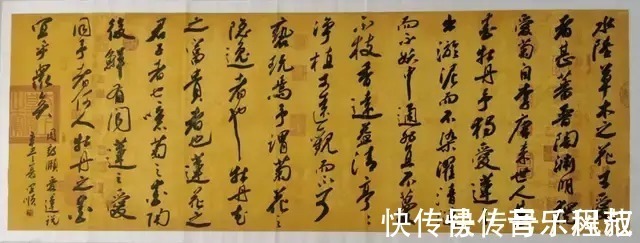 水陸草木之花可愛
者甚蕃晉陶淵明獨
愛菊自李唐來世人甚
愛牡丹予獨愛蓮之
出淤泥而不染濯清漣
而不妖中通外直不蔓
不枝香遠益清亭亭
淨植可遠觀而不可
褻玩焉予謂菊花之
隱逸者也牡丹花
之富貴者也蓮花之
君子者也噫菊之愛陶
後鮮有聞蓮之愛
同予者何人牡丹之愛
宜乎衆矣
周敦頤愛蓮說
快传号